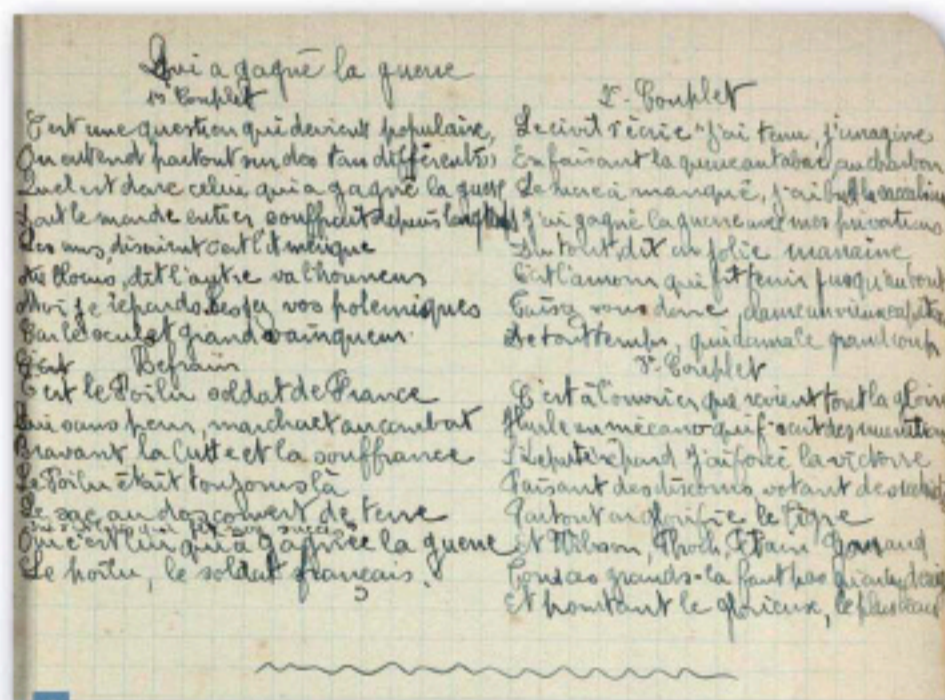 Qui a gagné la guerre
1er Couplet
C'est une question qui devient populaire,
On entend partout sur des tons différents
Quel est donc celui qui a gagné la guerre
Tout le monde entier souffrait depuis longtemps
Les uns, disaient c'est l'Amérique
dit l'autre va l'honneur
Moi je réponds vos polemiques
Car le seul et grand vainqueur
C'est Refrain
C'est le Poilu soldat de France
Qui sans peur, marchait au combat
Bravant la lutte et la souffrance
Le Poilu était toujours là
Le sac au dos couvert de terre
Oui c'est lui qui a gagnée la guerre
Le poilu, le soldat français.
2e - Couplet
Le civil s'écrie "j'ai tenu, j'imagine
En faisant la queue au tabac, au charbon
Le sucre a manqué, j'ai bu la
j'ai gagné la guerre avec mes privations
Du tout, dit un jolie
C'est l'amour qui fit tenir jusqu'au bout
Taisez vous donc,
De tout temps, qui grand coup
3e - Couplet
C'est à l'ouvrier que revient tout la gloire
Hurle un mécano qui f'sait des munitions
L' j'ai forcé la victoire
Faisant des discours, votant des
Partout on glorifie le Tigre
Et Wilson, Foch, Pétain
Tous ces grands-la faut pas
Et pourtant le glorieux, le plus beau